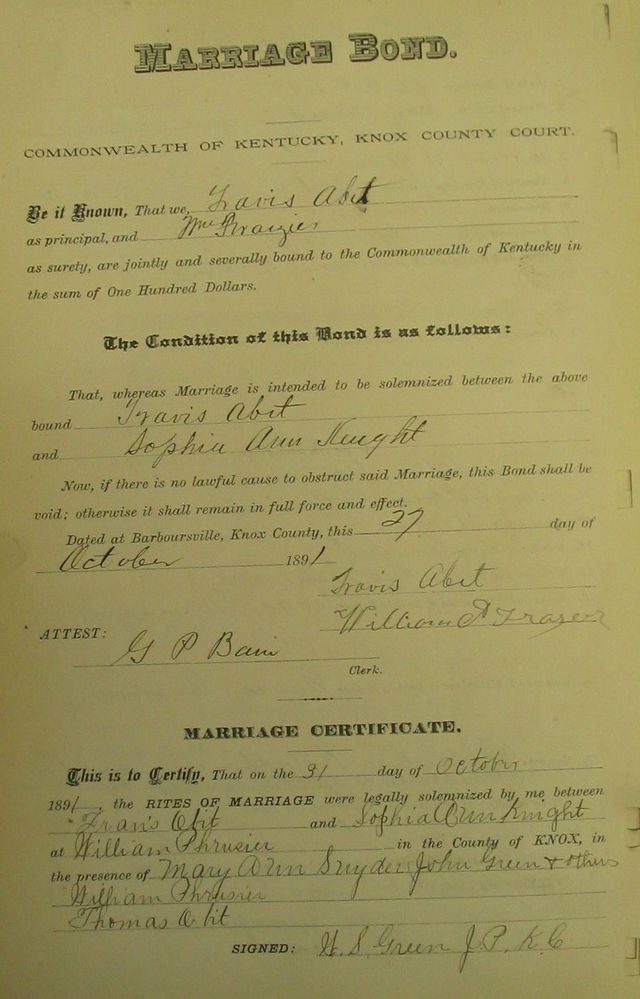 MARRIAGE BOND.
COMMONWEALTH OF KENTUCKY, KNOX COUNTY COURT.
Be it Known, That we, Travis Abit
as principal, and Wm Fraizier
as surety, are jointly and severally bound to the Commonwealth of Kentucky in
the sum of One Hundred Dollars.
The Condition of this Bond is as follows:
That, whereas Marriage is intended to be solemnized between the above
bound Travis Abit
and Sophia Ann Knight
Now, if there is no lawful cause to obstruct said Marriage, this Bond shall be
void; otherwise it shall remain in full force and effect.
Dated at Barboursville, Knox County, this 27 day of
October 1891
Travis Abit
William A Frasier
ATTEST:
G P Bain
Clerk.
MARRIAGE CERTIFICATE.
This is to Certify, That on the 31 day of October
1891, the RITES OF MARRIAGE were legally solemnized by me between
Travis Obit and Sophia Ann Knight
at William Phrusier in the County of KNOX, in
the presence of Mary Ann Snyder John Green + others
William Phrusier
Thomas Obit
SIGNED: W. S. Green J. P. K. C